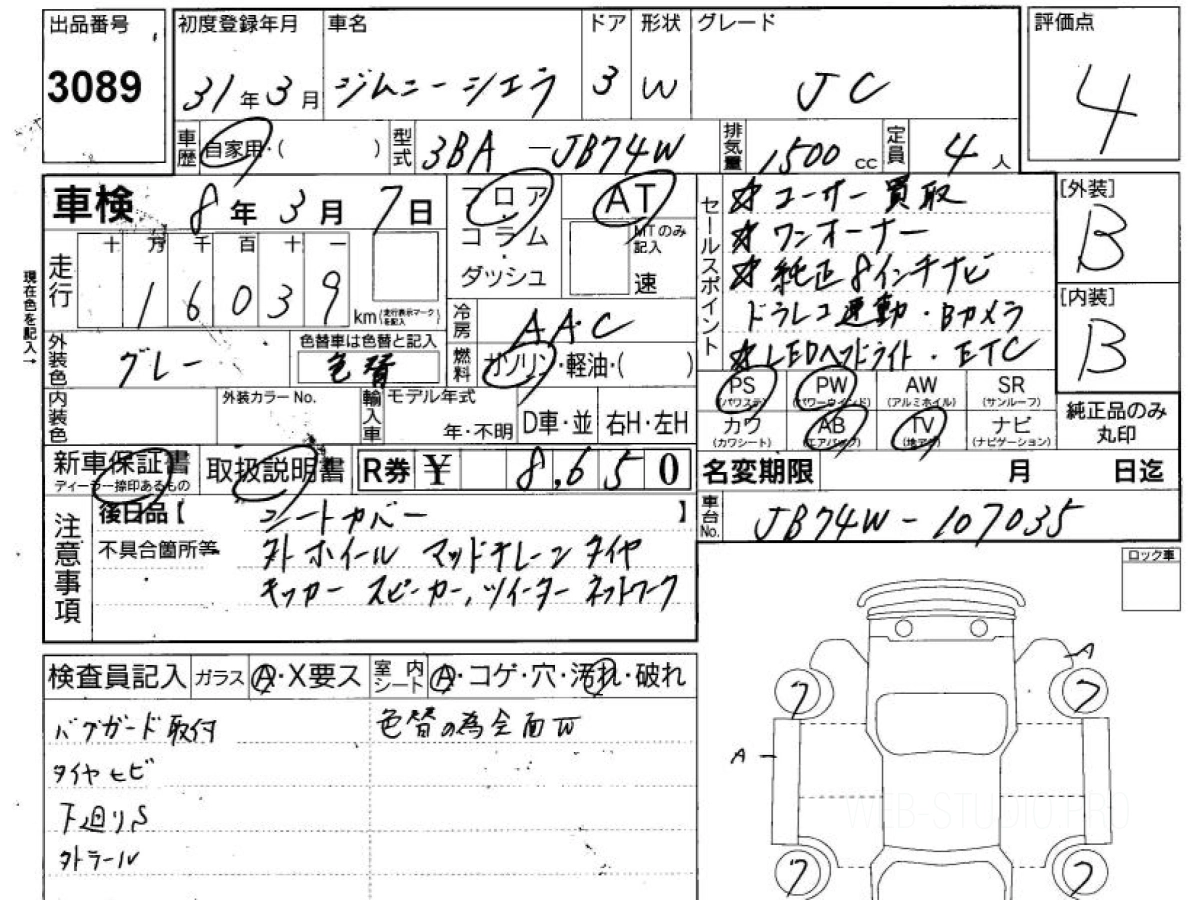 出品番号 初度登録年月 車名 ドア 形状 グレード 評価点
3089 31年3月 ジムニーシエラ 3 W JC 4
車歴 自家用・( ) 型式 3BA-JB74W 排気量 1500cc 定員 4人
車検 8年3月7日 フロア AT
コラム MTのみ記入
ダッシュ 速
セールスポイント
☆ユーザー買取
☆ワンオーナー
☆純正8インチナビ
ドラレコ連動・Bカメラ
☆LEDヘッドライト・ETC
[外装]
B
[内装]
B
現在色を記入→
走行 十 万 千 百 十 一
16039 km(走行表示マークを記入)
冷房 AAC
外装色 グレー 色替車は色替と記入
色替
燃料 ガソリン・軽油・( )
内装色 外装カラーNo. 輸入車 モデル年式
年・不明 D車・並 右H・左H
PS PW AW SR
(パワステ) (パワーウインド) (アルミホイル) (サンルーフ)
カワ AB TV ナビ
(カワシート) (エアバック) (地デジ) (ナビゲーション)
純正品のみ
丸印
新車保証書 取扱説明書 R券 ¥ 8,650
ディーラー捺印あるもの
名変期限 月 日迄
車台No. JB74W-107035
注意事項
後日品【 シートカバー 】
不具合箇所等 外ホイール マッドテレーンタイヤ
キッカー スピーカー,ツイーター ネットワーク
ロック車
検査員記入 ガラス A・X要ス 室内シート A・コゲ・穴・汚れ・破れ
バグガード取付 色替の為全面W
タイヤヒビ
下廻りS
外ラール
A
7 7
A
WEB-STUDIO.PRO
7 7